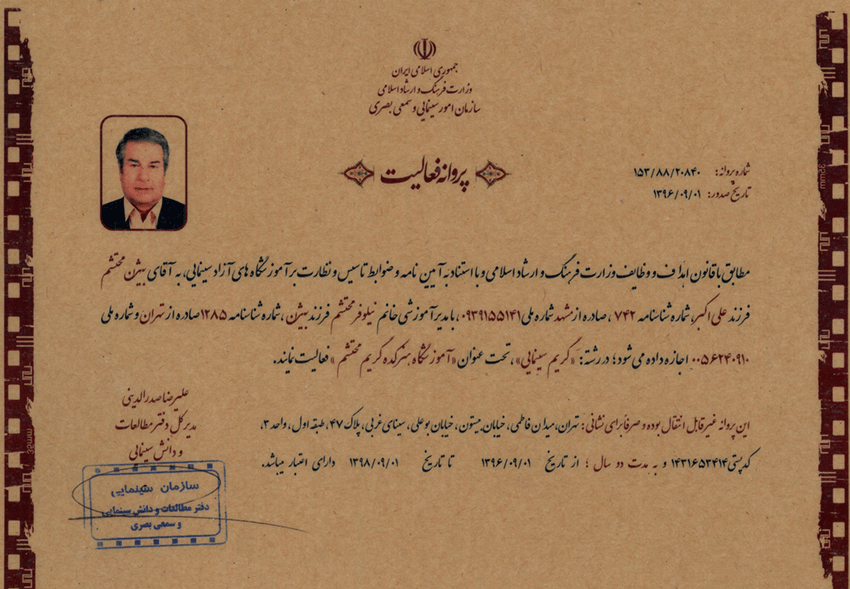 جمهوری اسلامی ایران
وزارت فرهنگ و ارشاد اسلامی
سازمان امور سینمایی و سمعی بصری
پروانه فعالیت
شماره پروانه: ۱۵۳/۸۸/۲۰۸۴۰
تاریخ صدور: ۱۳۹۶/۰۹/۰۱
مطابق با قانون اهداف و وظایف وزارت فرهنگ و ارشاد اسلامی و با استناد به آیین نامه و ضوابط تاسیس و نظارت بر آموزشگاه های آزاد سینمایی، به آقای بیژن محتشم
فرزند علی اکبر، شماره شناسنامه ۷۴۲، صادره از مشهد شماره ملی ۰۹۳۹۱۵۵۱۴۱، با مدیر آموزشی خانم نیلوفر محتشم فرزند بیژن، شماره شناسنامه ۱۲۸۵ صادره از تهران و شماره ملی
۰۰۵۶۲۴۰۹۱۰ اجازه داده می شود؛ در رشته: «گریم سینمایی»، تحت عنوان «آموزشگاه هنرکده گریم محتشم» فعالیت نمایند.
این پروانه غیر قابل انتقال بوده و صرفاً برای نشانی: تهران، میدان فاطمی، خیابان بیستون، خیابان بوعلی، سینای غربی، پلاک ۴۷، طبقه اول، واحد ۳،
کدپستی ۱۴۳۱۶۵۳۴۱۴ و به مدت دو سال ؛ از تاریخ ۱۳۹۶/۰۹/۰۱ تا تاریخ ۱۳۹۸/۰۹/۰۱ دارای اعتبار میباشد.
علیرضا صدرالدینی
مدیر کل دفتر مطالعات
و دانش سینمایی
سازمان سینمایی
دفتر مطالعات و دانش سینمایی
و سمعی بصری